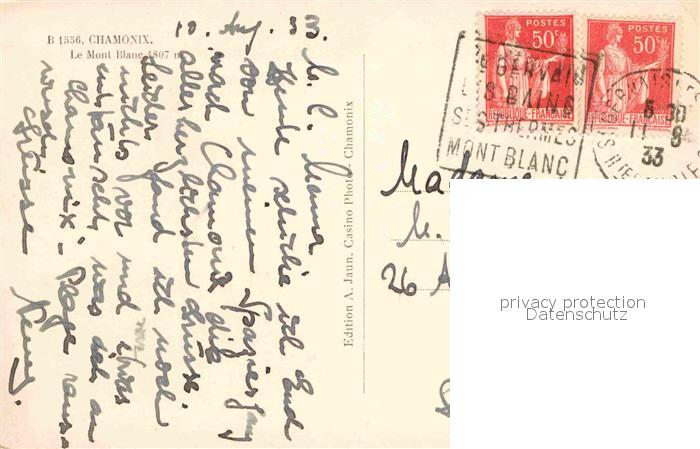 B 1556, CHAMONIX.
Le Mont Blanc 4807 m
10. Aug. 33.
M. L. Mama
Heute schicke ich Euch
von meinem Spaziergang
nach Chamonix die
allerherzlichsten Grüsse.
Leider fand ich noch
nichts vor und etwas
enttäuscht, was ich an
Chamonix-Plage
Grüsse
Edition A. Jaun, Casino Photo, Chamonix
POSTES
50c
REPUBLIQUE-FRANÇAISE
POSTES
50c
REPUBLIQUE-FRANÇAISE
ST GERVAIS
LES BAINS
SES THERMES
MONT BLANC
5 30
11 8
33
Madame
M.
26 A
privacy protection
Datenschutz